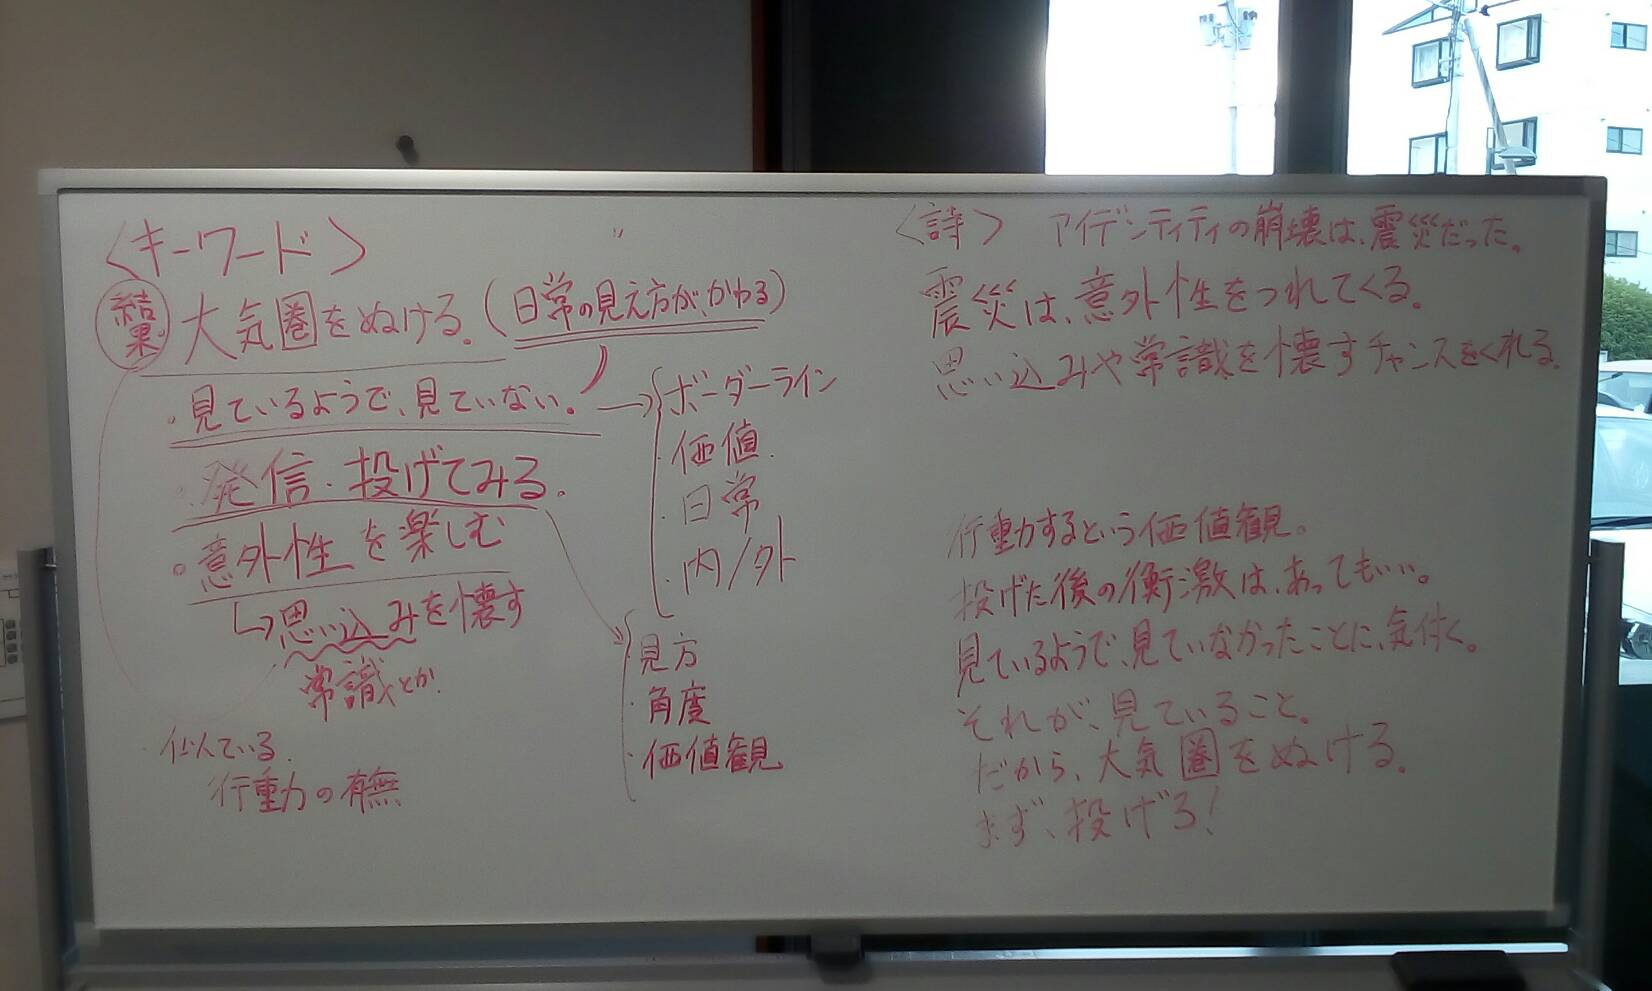 〈キーワード〉
結果 大気圏をぬける。(日常の見え方が、かわる)
・見ているようで、見ていない。
・発信・投げてみる。
・意外性を楽しむ
↳思い込みを懐す
常識とか
・似ている。
行動力の有無
→{ボーダーライン
・価値
・日常
・内/外
・見方
・角度
・価値観
〈詩〉 アイデンティティの崩壊は、震災だった。
震災は、意外性をつれてくる。
思い込みや常識を懐すチャンスをくれる。
行動力するという価値観。
投げた後の衝激は、あってもいい。
見ているようで、見ていなかったことに、気付く。
それが、見ていること。
だから、大気圏をぬける。
まず、投げろ!